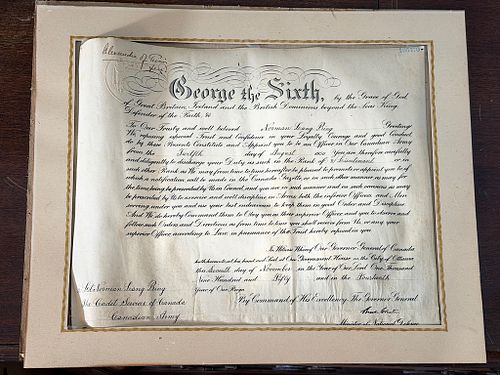 Alexander of Tunis
George the Sixth,
by the Grace of God,
of Great Britain, Ireland and the British Dominions beyond the Seas King,
Defender of the Faith, &c
To Our Trusty and well beloved Norman Leang Bing Greeting
We reposing especial Trust and Confidence in your Loyalty Courage and good Conduct
do by these Presents Constitute and Appoint you to be an Officer in Our Canadian Army
from the Twelfth day of August 1950 You are therefore carefully
and diligently to discharge your Duty as such in the Rank of 2/Lieutenant or in
such other Rank as We may from time to time hereafter be pleased to promote or appoint you to of
which a notification will to made in the Canada Gazette, or in such other manner as may for
the time being be prescribed by Us in Council, and you are in such manner and on such occasions as may
be prescribed by Us to exercise and well discipline in Arms both the inferior Officers and Men
serving under you and use your best endeavours to keep them in good Order and Discipline
And We do hereby Command them to Obey you as their superior Officer and you to observe and
follow such Orders and Directions as from time to time you shall receive from Us, or any your
superior Officer according to Law, in pursuance of the Trust hereby reposed in you
In Witness Whereof Our Governor General of Canada
hath hereunto set his hand and Seal at Our Government House in the City of Ottawa
this Seventh day of November in the Year of Our Lord One Thousand
Nine Hundred and Fifty and in the Fourteenth
Year of Our Reign
By Command of His Excellency The Governor General
2/Lt. Norman Leang Bing
The Cadet Services of Canada
Canadian Army
Minister of National Defence